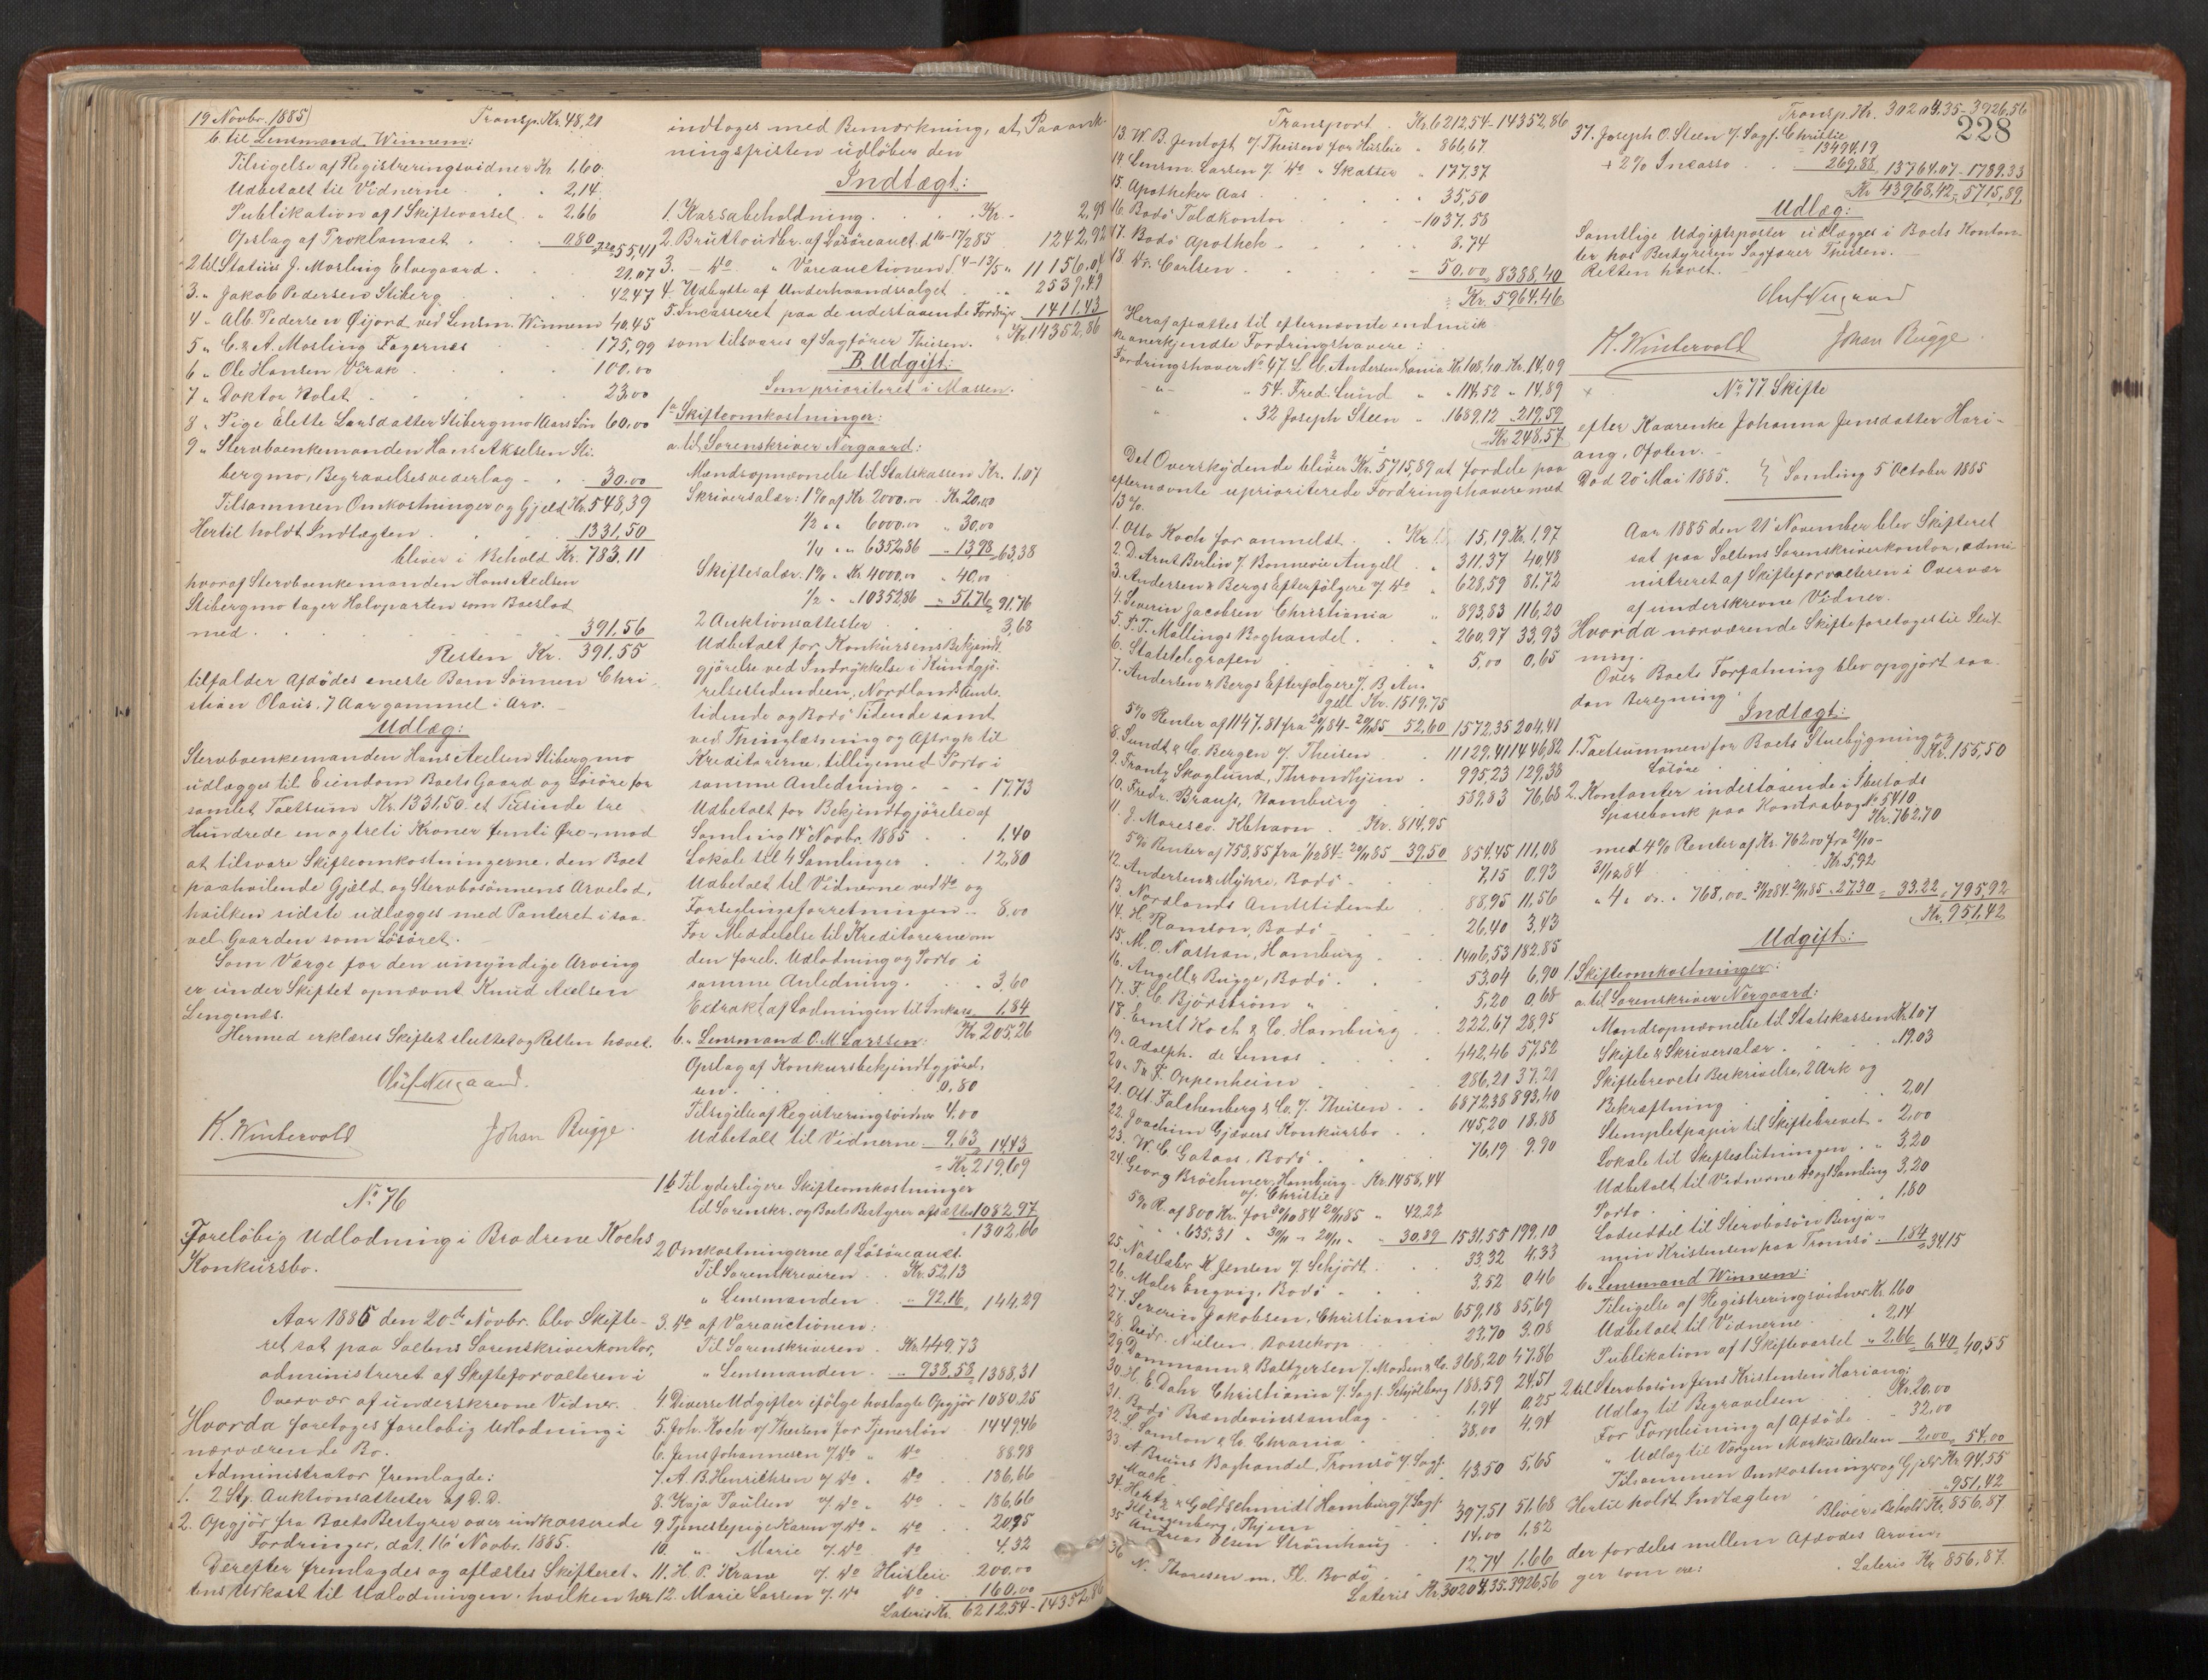 19 Novbr. 1885) Transp. Kr. 48,21
b. til Lensmand Winnem:
Tilsigelse af Registreringsvidner Kr 1,60
Udbetalt til Vidnerne " 2,14
Publikation af 1 Skiftevarsel " 2,66
Opslag af Proklamaet " 0,80 = 7,20 = 55,41
2 til Statius J. Mosling Elvegaard 21.07
3 " Jakob Pedersen Stiberg 42,47
4 " Alb. Pedersen Øijord ved Lensm. Winnem 40,45
5 " C. & A. Mosling Fagernes 175,99
6 " Ole Hansen Virak 100,00
7 " Doktor Holst 23,00
8 " Pige Elette Larsdatter Stibergmo 1 Aars Løn 60,00
9 " Stervboenkemanden Hans Akselsen Sti-
bergmo, Begravelsesvederlag 30,00
Tilsammen Omkostninger og Gjeld Kr. 548,39
Hertil holdt Indtægten 1331,50
bliver i Behold Kr. 783,11
hvoraf Stervboenkemanden Hans Axelsen
Stibergmo tager Halvparten som Boeslod
med 391,56
Resten Kr. 391,55
tilfalder Afdødes eneste Barn Sønnen Chri-
stian Olaus, 7 Aar gammel i Arv.
Udlæg:
Stervboenkemanden Hans Axelsen Stibergmo
udlægges til Eiendom Boets Gaard og Løsøre for
samlet Taxtsum Kr. 1331,50 et Tusinde tre
Hundrede en og treti Kroner femti Øre, mod
at tilsvare Skifteomkostningerne, den Boet
paahvilende Gjæld og Stervbosønnens Arvelod,
hvilken sidste udlægges med Panteret i saa-
vel Gaarden som Løsøret.
Som Værge for den umyndige Arving
er under Skiftet opnævnt Knud Axelsen
Lengenæs.
Hermed erklæres Skiftet sluttet og Retten hævet.
Oluf Nergaard.
K. Wintervold Johan Bugge.
No 76
Foreløbig Udlodning i Brødrene Kochs
Konkursbo.
Aar 1885 den 20de Novbr. blev Skifte-
ret sat paa Saltens Sorenskriverkontor,
administreret af Skifteforvalteren i
Overvær af underskrevne Vidner.
Hvorda foretoges foreløbig Udlodning i
nærværende Bo.
Administrator fremlagde:
1. 2 Stp. Auktionsattester af D. D.
2. Opgjør fra Boets Bestyrer over indkasserede
Fordringer, dat. 16' Novbr. 1885.
Derefter fremlagdes og aflæstes Skifteret-
tens Udkast til Udlodningen, hvilken her
indtages med Bemærkning, at Paaank-
ningsfristen udløber den
Indtægt:
1. Kassabeholdning Kr. 2,98
2. Bruttoudbr. af Løsøreauct. d. 16-17/2 85 1242,92
3. " Do " Vareauctionen d. 4-13/5 " 11156,04
4. Udbytte af Underhaandssalget 2539,49
5. Incasseret paa de udestaaende Fordrger 1411,43
som tilsvares af Sagfører Theisen. Kr. 14352,86
B. Udgift:
Som prioriteret i Massen.
1a Skifteomkostninger:
a til Sorenskriver Nergaard:
Mandsopnævnelse til Statskassen Kr. 1.07
Skriversalær: 1% af Kr 2000,00 Kr 20,00
1/2 " " 6000,00 " 30,00
1/4 " " 6352,86 " 13,98 = 63,38
Skiftesalær. 1% " Kr 4000,00 " 40,00
1/2 " " 10352,86 " 51,76 = 91,76
2 Auktionsattester 3,68
Udbetalt for Konkursens Bekjendt-
gjørelse ved Indrykkelse i Kundgjø-
relsestidenden, Nordlands Amts-
tidende og Bodø Tidende samt
ved Thinglæsning og Aftryk til
Kreditorerne, tilligemed Porto i
samme Anledning 17,73
Udbetalt for Bekjendtgjørelse af
Samling 14 Novbr. 1885 1,40
Lokale til 4 Samlinger 12,80
Udbetalt til Vidnerne ved Do og
Forseglingsforretningen 8,00
For Meddelelse til Kreditorerne om
den forel. Udlodning og Porto i
samme Anledning 3,60
Extrakt af Lodningen til Inkass. 1,84
Kr. 205,26
b. Lensmand O. M. Larssen:
Opslag af Konkursbekjendtgjørel-
sen 0,80
Tilsigelse af Registreringsvidner 4,00
Udbetalt til Vidnerne 9,63 = 14,43
= Kr. 219,69
1b Til yderligere Skifteomkostninger
til Sorenskr. og Boets Bestyrer afsættes 1082,97
1302,66
2 Omkostningerne af Løsøreauct.
Til Sorenskriveren Kr. 52,13
" Lensmanden " 92,16 = 144,29
3. Do af Vareauctionen:
Til Sorenskriveren Kr. 449,73
" Lensmanden " 938,58 = 1388,31
4 Diverse Udgifter ifølge hoslagte Opgjør 1080,25
5. Joh. Koch v/ Theisen for Tjenerløn 1449,46
6. Jens Johannesen v/ Do " Do 88,98
7. A. B. Henrichsen v/ Do " Do 186,66
8. Kaja Paulsen v/ Do " Do 186,66
9 Tjenestepige Karen v/ Do " Do 20,75
10. " Marie v/ Do Do 4,32
11. H. P. Krane v/ Do Husleie 200,00
12. Marie Larsen v/ Do Do 160,00
Lateris Kr. 6212,54 - 14352,86
Transport Kr. 6212,54 - 14352,86
13. W. B. Jentoft v/ Theisen for Husleie " 866,67
14 Lensm. Larsen v/ Do " Skatter " 177,37
15. Apotheker Aas 35,50
16. Bodø Toldkontor 1037,58
17. Bodø Apothek 8.74
18. Dr. Carlsen 50,00 = 8388,40
Kr. 5964,46
Heraf afsættes til efternævnte endnu ik-
ke anerkjendte Fordringshavere:
Fordringshaver No 47 L. C. Andersen Xania Kr. 108,40 Kr. 14,09
" " 54. Fred. Lund " " 114,52 " 14,89
" " 32 Joseph Steen " 1689,12 219,59
Kr. 248,57
Det Overskydende bliver Kr. 5715,89 at fordele paa
efternævnte uprioriterede Fordringshavere med
13%.
1. Otto Koch for anmeldt Kr. 15,19 Kr. 1,97
2. D. Arnt Berlin v/ Bonnevie Angell 311,37 40,48
3. Andersen & Bergs Efterfølgere v/ Do 628,59 81,72
4. Severin Jacobsen Christiania 893,83 116,20
5. P. T. Mallings Boghandel 260,97 33,93
6. Statstelegrafen 5,00 0,65
7. Andersen & Bergs Efterfølgere v/ B. An-
gell Kr. 1519,75
5% Renter af 1147.81 fra 20/12 84 - 20/11 85 52,60 1572,35 204,41
8. Sundt & Co. Bergen v/ Theisen 11129,41 1446,82
9. Frantz Skoglund, Throndhjem 995,23 129,38
10. Fredr. Brauss, Hamburg 589,83 76,68
11. J. Moresco. Kbhavn Kr. 814,95
5% Renter af 758,85 fra 1/12 84 - 20/11 85 39,50 854,45 111,08
12. Andersen & Myhre, Bodø 7,15 0,93
13. Nordlands Amtstidende 88,95 11,56
14. H. Ramson, Bodø 26,40 3,43
15. M. O. Nathan, Hamburg 1406,53 182,85
16. Angell & Bugge, Bodø 53,04 6,90
17. F. C. Bjørstrøm " 5,20 0,68
18. Ernst Koch & Co. Hamburg 222,67 28,95
19. Adolph. de Lemos 442,46 57,52
20. Th. F. Oppenheim 286,21 37,21
21. Ott. Falchenberg & Co. v/ Theisen 6872,38 893,40
22. Joachim Gjævers Konkursbo 145,20 18,88
23. W. C. Gotaas, Bodø 76,19 9.90
24. Georg Bröchmer, Hamburg Kr. 1458,44
v/ Christie
5% R. af 800 Kr. for 30/10 84 20/11 85 " 42,22
" " 635,31 " 30/11 " 20/11 " " 30,89 1531,55 199,10
25. Notelæber K. Jensen v/ Schjødt 33,32 4,33
26. Maler Engvig, Bodø 3,52 0,46
27. Severin Jakobsen, Christiania 659,18 85,69
28. Fredr. Nielsen, Bossekop 23,70 3.08
29. Dammann & Baltzersen v/ Morten & Co. 368,20 47,86
30. H. E. Dahr Christiania v/ Sagf. Schjølberg 188,59 24,51
31. Bodø Brændevinssamlag 1,94 0,25
32. L. Samson & Co. Chrania 38,00 4,94
33. A Bruns Boghandel, Tromsø v/ Sagf.
Mack 43,50 5,65
34. Hertz & Goldschmidt Hamburg v/ Sagf.
Klingenberg, Thjem 397,51 51,68
35 Andreas Olsen Strömhaug 14,00 1,82
36 N. Thoresen m. Fl. Bodø 12,74 1.66
Lateris Kr. 30204.35 - 3926,56
Transp. Kr. 30204.35 - 3926,56
228
37. Joseph O. Steen v/ Sagf. Christie
13494.19
+ 2% Incasso 269.88 = 13764.07 - 1789.33
Kr. 43968,42 = 5715,89
Udlæg:
Samtlige Udgiftsposter udlægges i Boets Kontan-
ter hos Bestyreren Sagfører Theisen.
Retten hævet.
Oluf Nergaard
K. Wintervold Johan Bugge.
No 77 Skifte
efter Kaarenke Johanna Jensdatter Hari-
ang, Ofoten.
Død 20' Mai 1885. } Samling 5' October 1885
Aar 1885 den 21' November blev Skifteret
sat paa Saltens Sorenskriverkontor, admi-
nistreret af Skifteforvalteren i Overvær
af underskrevne Vidner.
Hvorda nærværende Skifte foretoges til Slut-
ning.
Over Boets Forfatning blev opgjort saa-
dan Beregning:
Indtægt:
1. Taxtsummen for Boets Stuebygning og
Løsøre Kr. 155,50
2. Kontanter indestaaende i Ibestads
Sparebank paa Kontrabog No 5410
Kr. 762,70
med 4% Renter af Kr. 762 00 fra 21/10 -
31/12 84 Kr. 5,92
" 4 " " " 768,00 " 31/12 84 - 21/11 85 27,30 = 33.22 = 795,92
Kr. 951,42
Udgift:
1. Skifteomkostninger:
a. til Sorenskriver Nergaard:
Mandsopnævnelse til Statskassen Kr. 1,07
Skifte & Skriversalær 19.03
Skiftebrevets Beskrivelse, 2 Ark og
Bekræftning 2,01
Stempletpapir til Skiftebrevet 2,00
Lokale til Skifteslutningen 3,20
Udbetalt til Vidnerne Do og 1 Samling 3,20
Porto 1,80
Lodseddel til Stervbosøn Benja-
min Kristensen paa Tromsø 1,84 = 34,15
b. Lensmand Winnem:
Tilsigelse af Registreringsvidner Kr. 1.60
Udbetalt til Vidnerne " 2,14
Publikation af 1 Skiftevarsel " 2,66 = 6,40 = 40,55
2 til Stervbosøn Jens Kristensen Hariang:
Udlæg til Begravelsen Kr. 20,00
For Forpleining af Afdøde 32,00
" Udlæg til Værgen Markus Axelsen 2,00 = 54,00
Tilsammen Omkostninger og Gjeld Kr 94,55
Hertil holdt Indtægten 951,42
Bliver i Behold Kr. 856,87
der fordeles mellem Afdødes Arvin-
ger som ere:
Lateris Kr. 856,87.